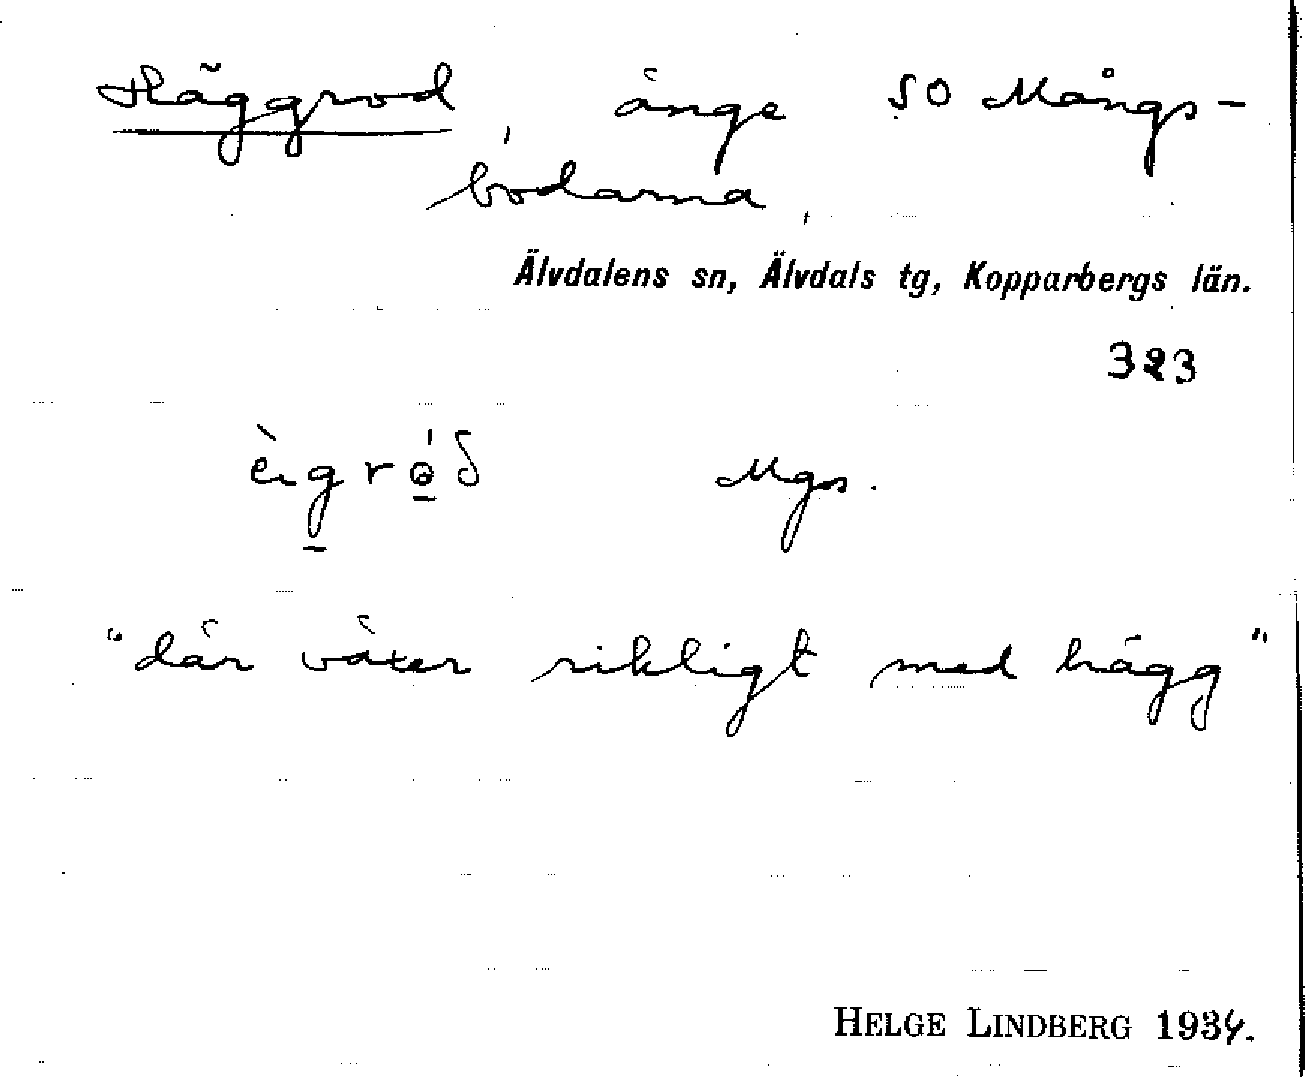 Häggrod, änge SO Mångs-
bodarna,
Älvdalens sn, Älvdals tg, Kopparbergs län.
323
Mgs.
"där växer rikligt med hägg"
HELGE LINDBERG 1934.